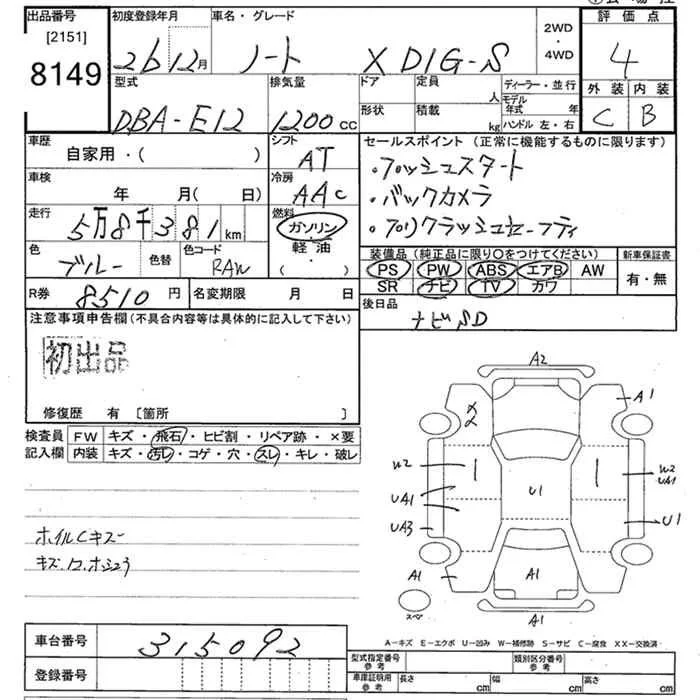 出品番号
[2151]
8149
初度登録年月
26 12月
車名・グレード
ノート X DIG-S
2WD
・
4WD
評価点
4
外装 内装
C B
型式
DBA-E12
排気量
1200cc
ドア 定員
人
形状 積載
kg
ディーラー・並行
モデル年式 年
ハンドル 左・右
車歴
自家用・( )
シフト
AT
車検
年 月( 日)
冷房
AAC
走行
5万8千381km
燃料
ガソリン
軽油
( ・ )
色
ブルー
色替
色コード
RAW
R券 8510円
名変期限 月 日
セールスポイント (正常に機能するものに限ります)
・プッシュスタート
・バックカメラ
・プリクラッシュセーフティ
装備品 (純正品に限り〇をつけてください)
PS PW ABS エアB AW
SR ナビ TV カワ
新車保証書
有・無
後日品
ナビSD
注意事項申告欄(不具合内容等は具体的に記入して下さい)
初出品
修復歴 有 [箇所 ]
検査員記入欄
FW キズ・飛石・ヒビ割・リペア跡・×要
内装 キズ・汚レ・コゲ・穴・スレ・キレ・破レ
ホイルCキズ
A2
A1
X
W2
UA1
UA3
A1
U1
W2
UA1
U1
A1
A1
スペア
A-キズ E-エクボ U-凹み W-補修跡 S-サビ C-腐食 XX-交換済
車台番号 315092
登録番号
型式指定番号 参考
類別区分番号 参考
車庫証明用 参考
長さ cm 幅 cm 高さ cm